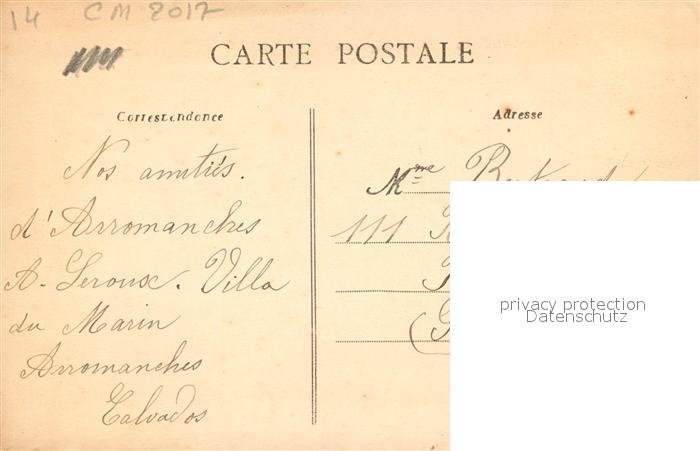 14 CM 2017
CARTE POSTALE
Correspondance
Adresse
Nos amitiés.
d'Arromanches
A. Leroux. Villa
du Marin
Arromanches
Calvados
Mme
111
privacy protection
Datenschutz